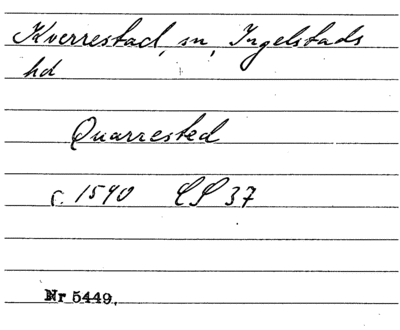 Kverrestad, sn, Ingelstads
hd
Quarrested
c. 1590 LS 37
Nr 5449.